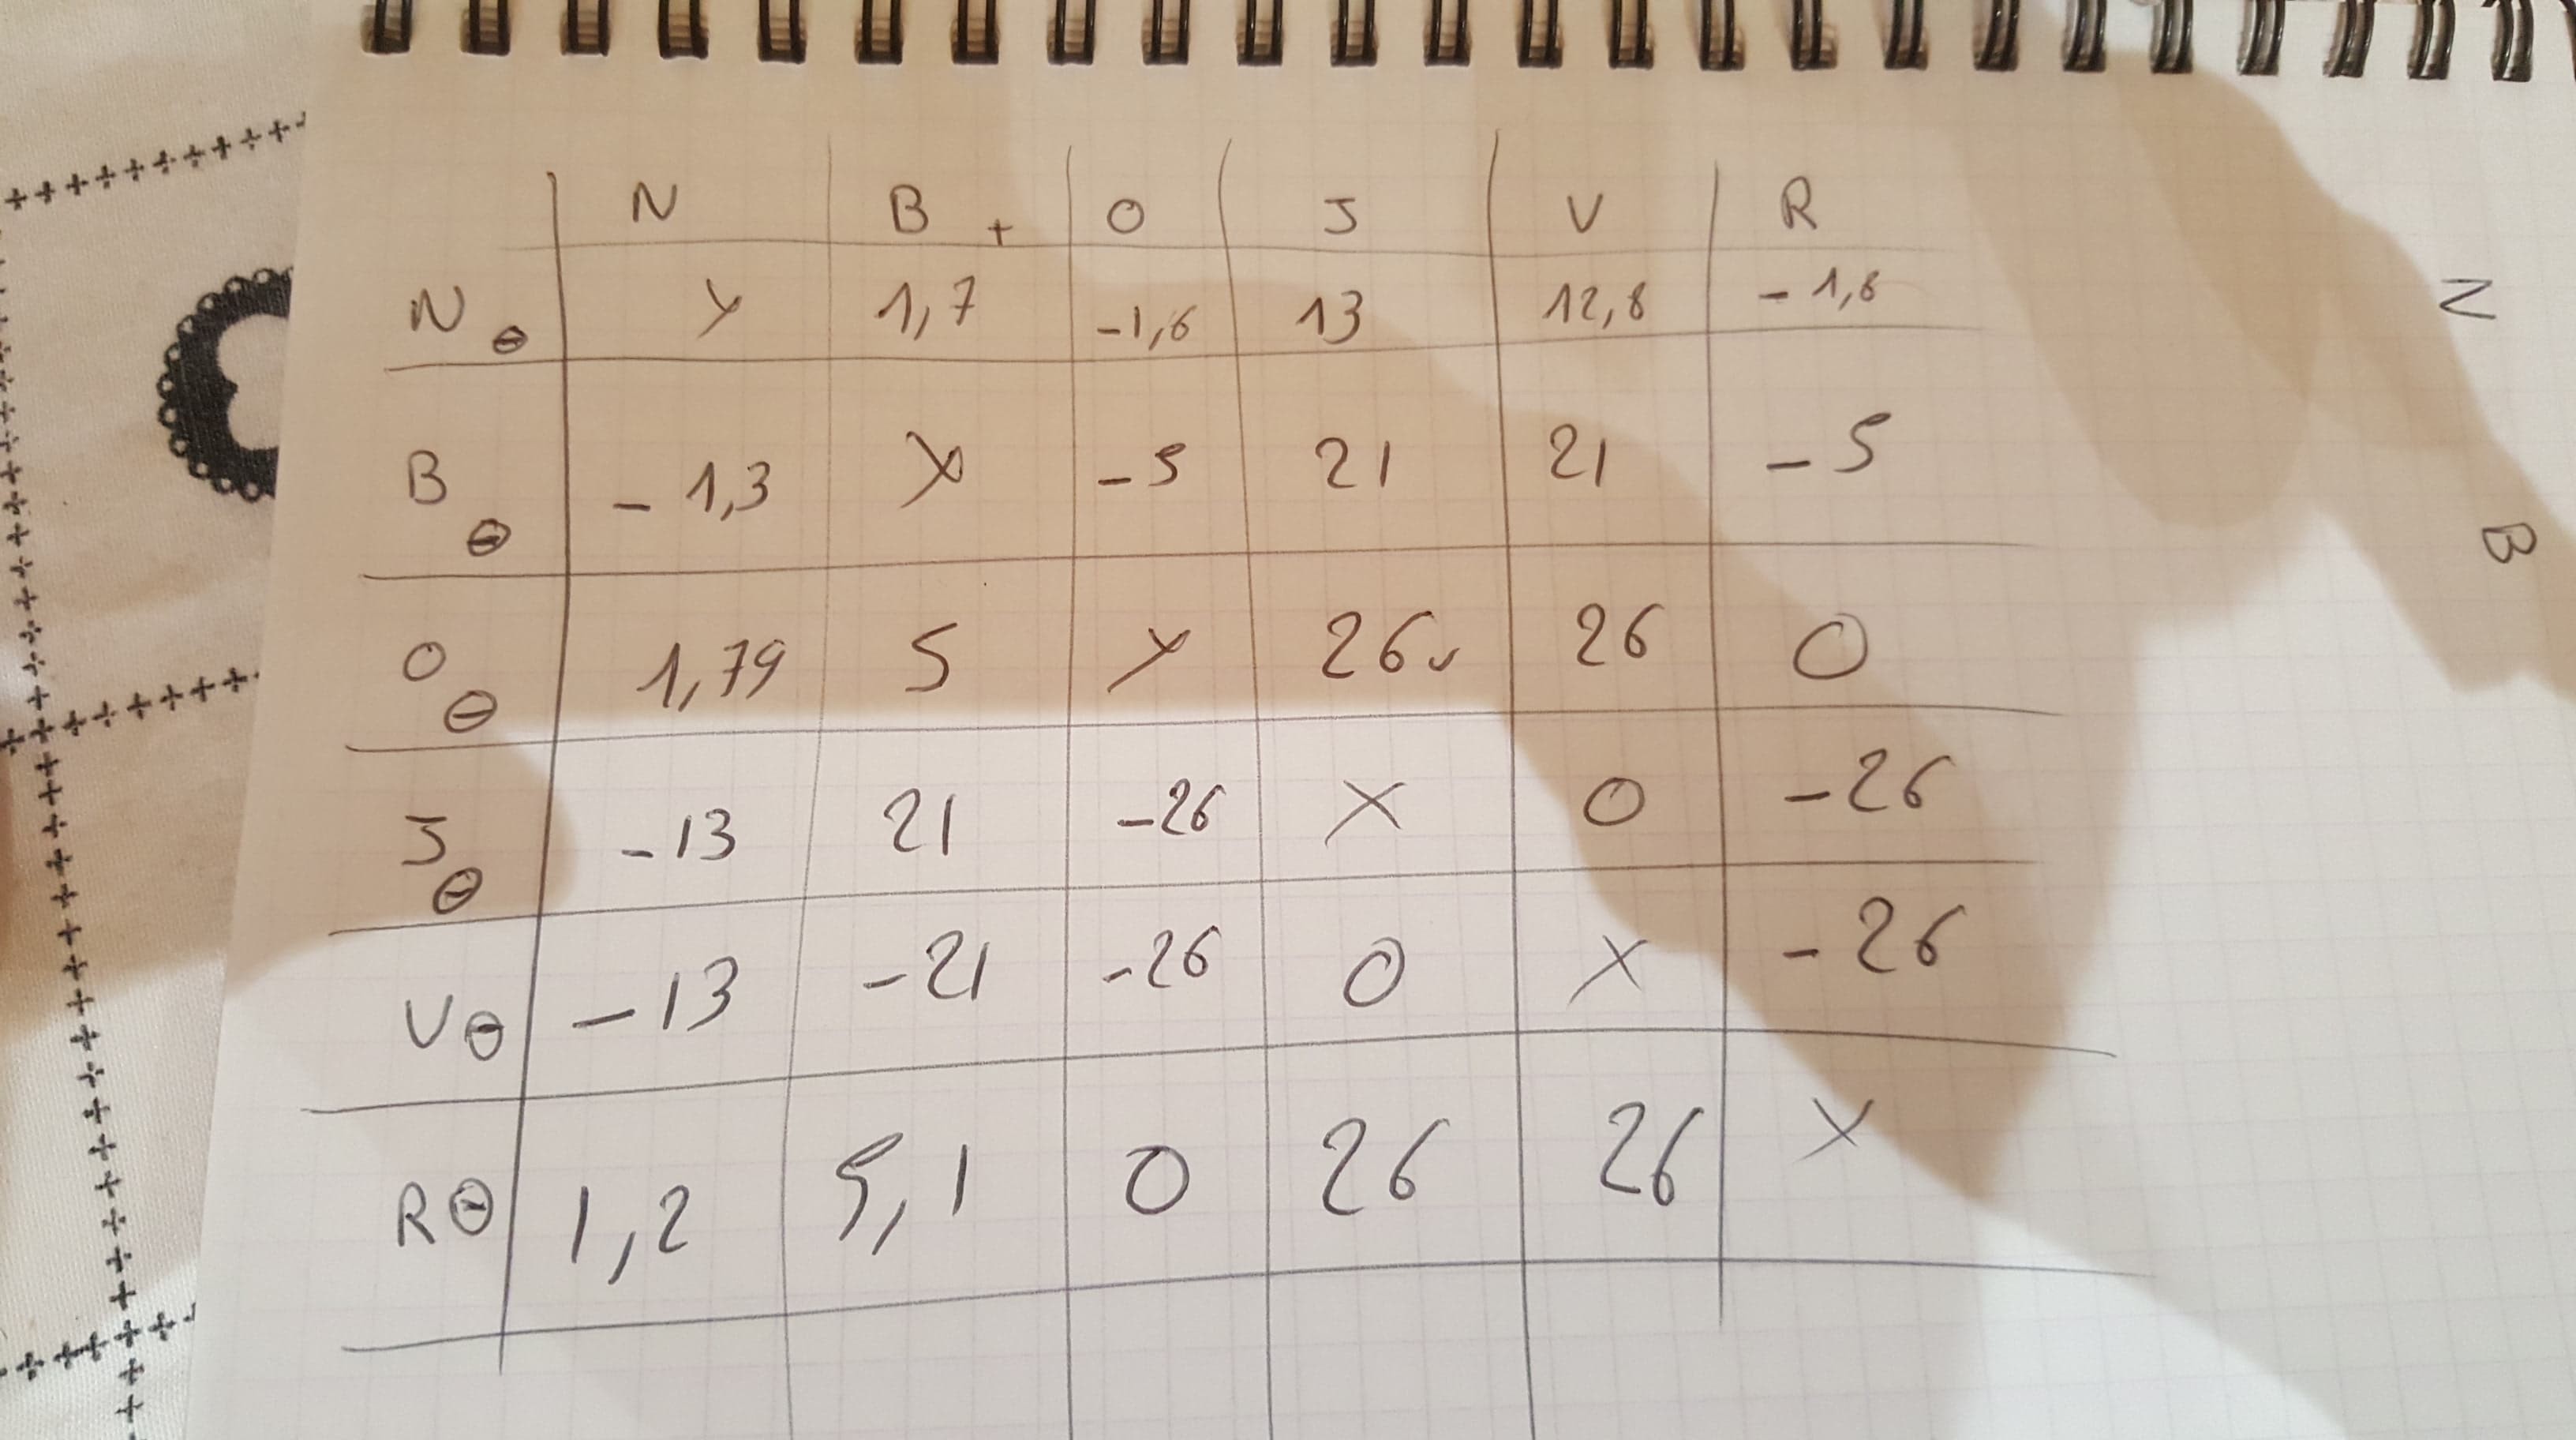 N B + O J V R
N ⊖ X 1,7 -1,6 13 12,8 -1,8
B ⊖ -1,3 X -5 21 21 -5
O ⊖ 1,79 5 X 26 26 0
J ⊖ -13 21 -26 X 0 -26
V ⊖ -13 -21 -26 0 X -26
R ⊖ 1,2 5,1 0 26 26 X
N
B